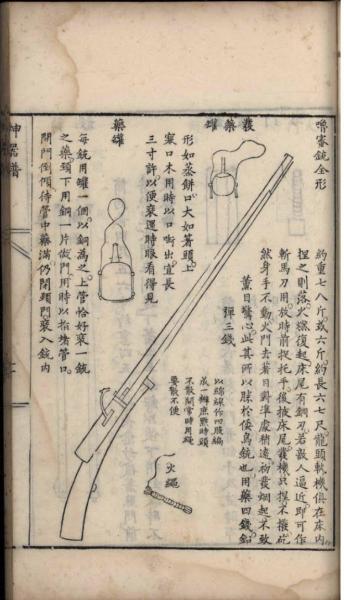 嚕嘧銃全形
約重七八斤或六斤約長六七尺龍頭軌機俱在床內
捏之則落火燃復起床尾有鋼刃若敵人逼近即可作
斬馬刀用放時前捉托手後掖床尾發機只捏不撥砣
然身手不動火門去著目對準處稍遠初發烟起不致
薰目驚心此其所以勝於倭鳥銃也用藥四錢鉛
彈三錢
發藥罐
形如蒸餅口大如箸頭
塞口木用時以口啣出宜長
三寸許以便裝運時眼看得見
藥罐
每銃用罐一個以銅為之上管恰好裝一銃
之藥頸下用銅一片做門用時以指堵管口
開門倒傾待管中藥滿仍閉頸門裝入銃內
火繩
以綿線作四股編
成一瓣庶燃時頭
不散開常時用繩
要散不便
神器譜